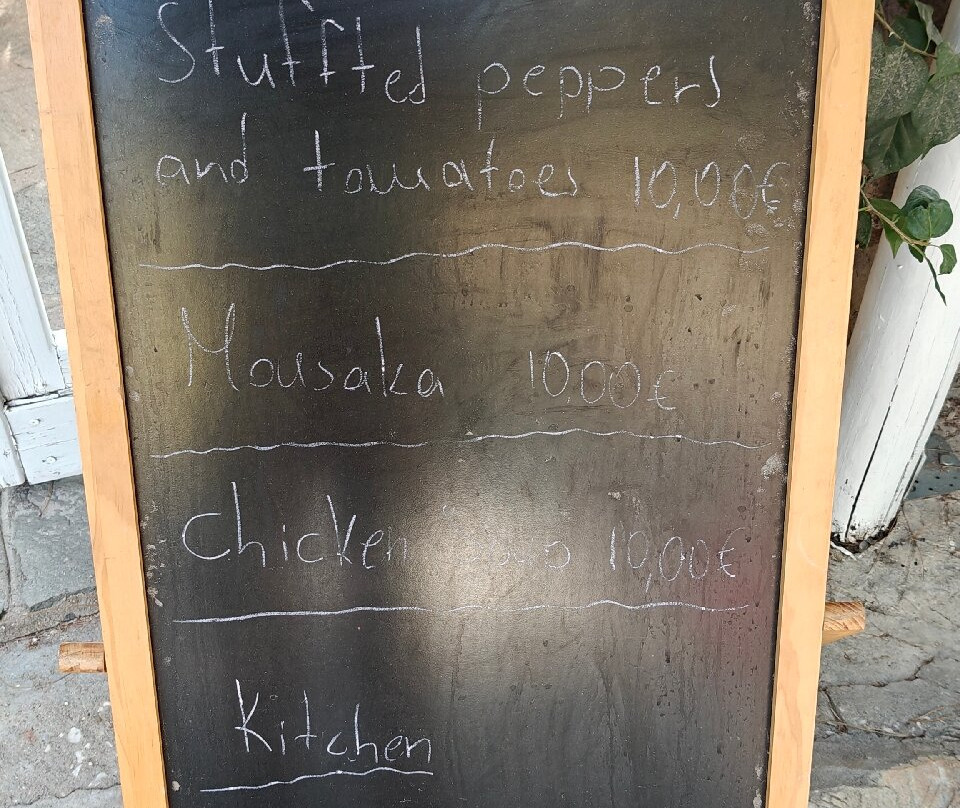 Stuffted peppers
and tomatoes 10,00€
Mousaka 10,00€
Chicken 10,00€
Kitchen